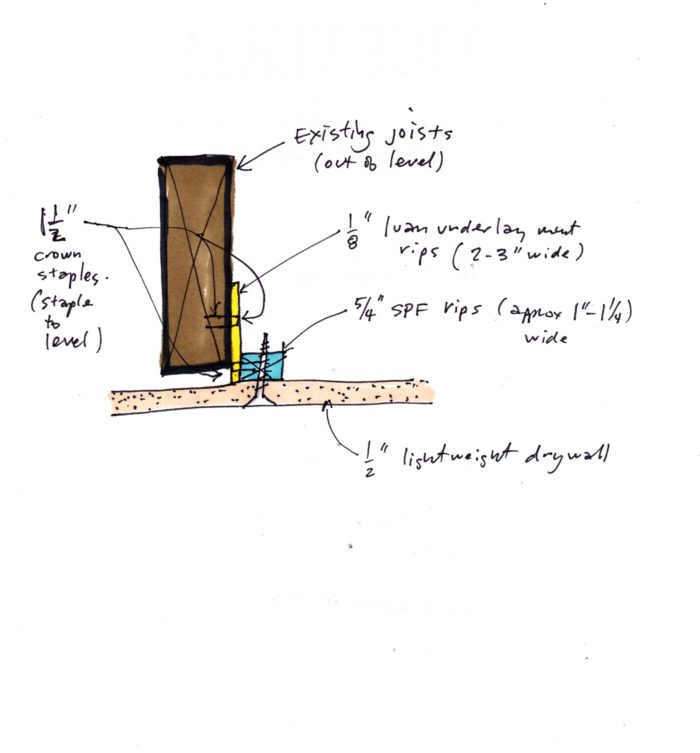 Existing joists
(out of level)
1 1/2"
crown
staples.
(staple
to
level)
1/8" luan underlayment
rips (2-3" wide)
5/4" SPF rips (approx 1"-1 1/4)
wide
1/2" lightweight drywall